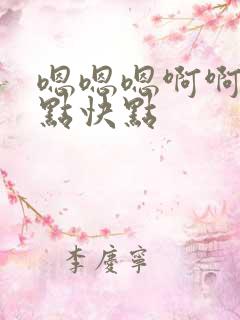 嗯嗯嗯啊啊
點快點
李慶寧